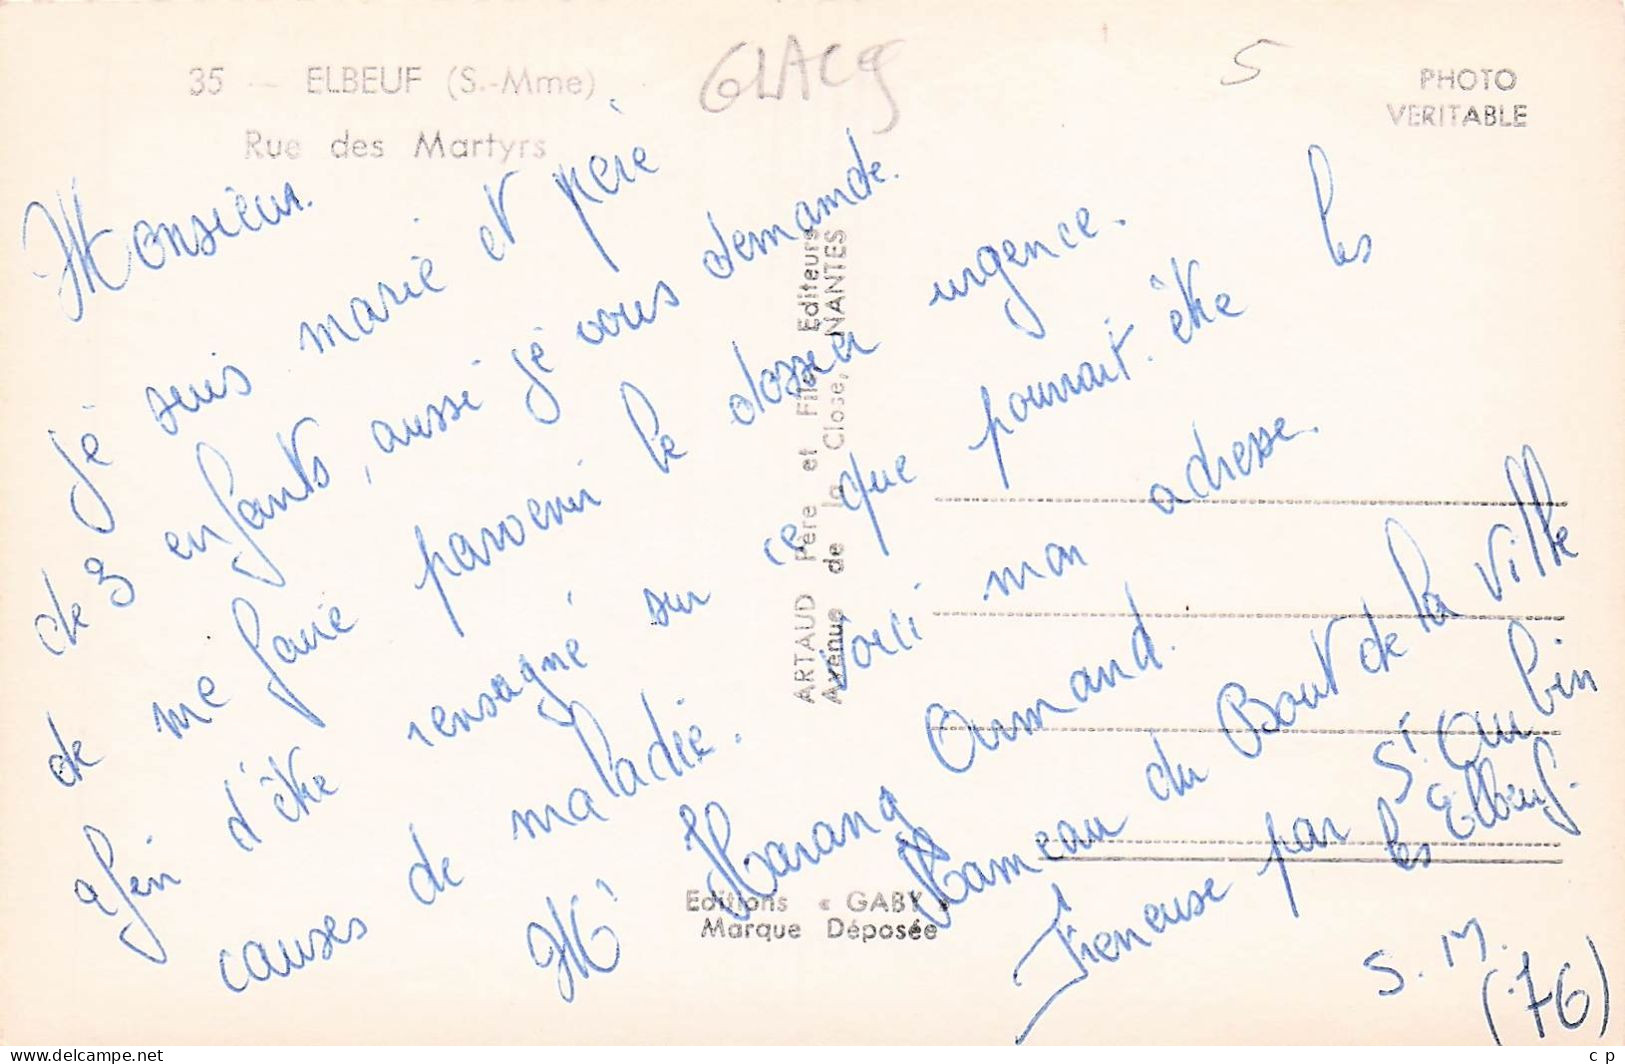 35 — ELBEUF (S.-Mme)
Rue des Martyrs
GLAC9
5
PHOTO
VERITABLE
Monsieur.
Je suis marié et père
de 3 enfants, aussi je vous demande.
de me faire parvenir le dossier urgence.
afin d'être renseigné sur ce que pourrait-être les
causes de maladie. Voici mon adresse.
Mr Harang Armand.
Hameau du Bout de la Ville
Freneuse par St Aubin
les Elbeuf.
S. M.
(76)
ARTAUD Père et Fils, Editeurs
Avenue de la Close, NANTES
Editions « GABY »
Marque Déposée
c p